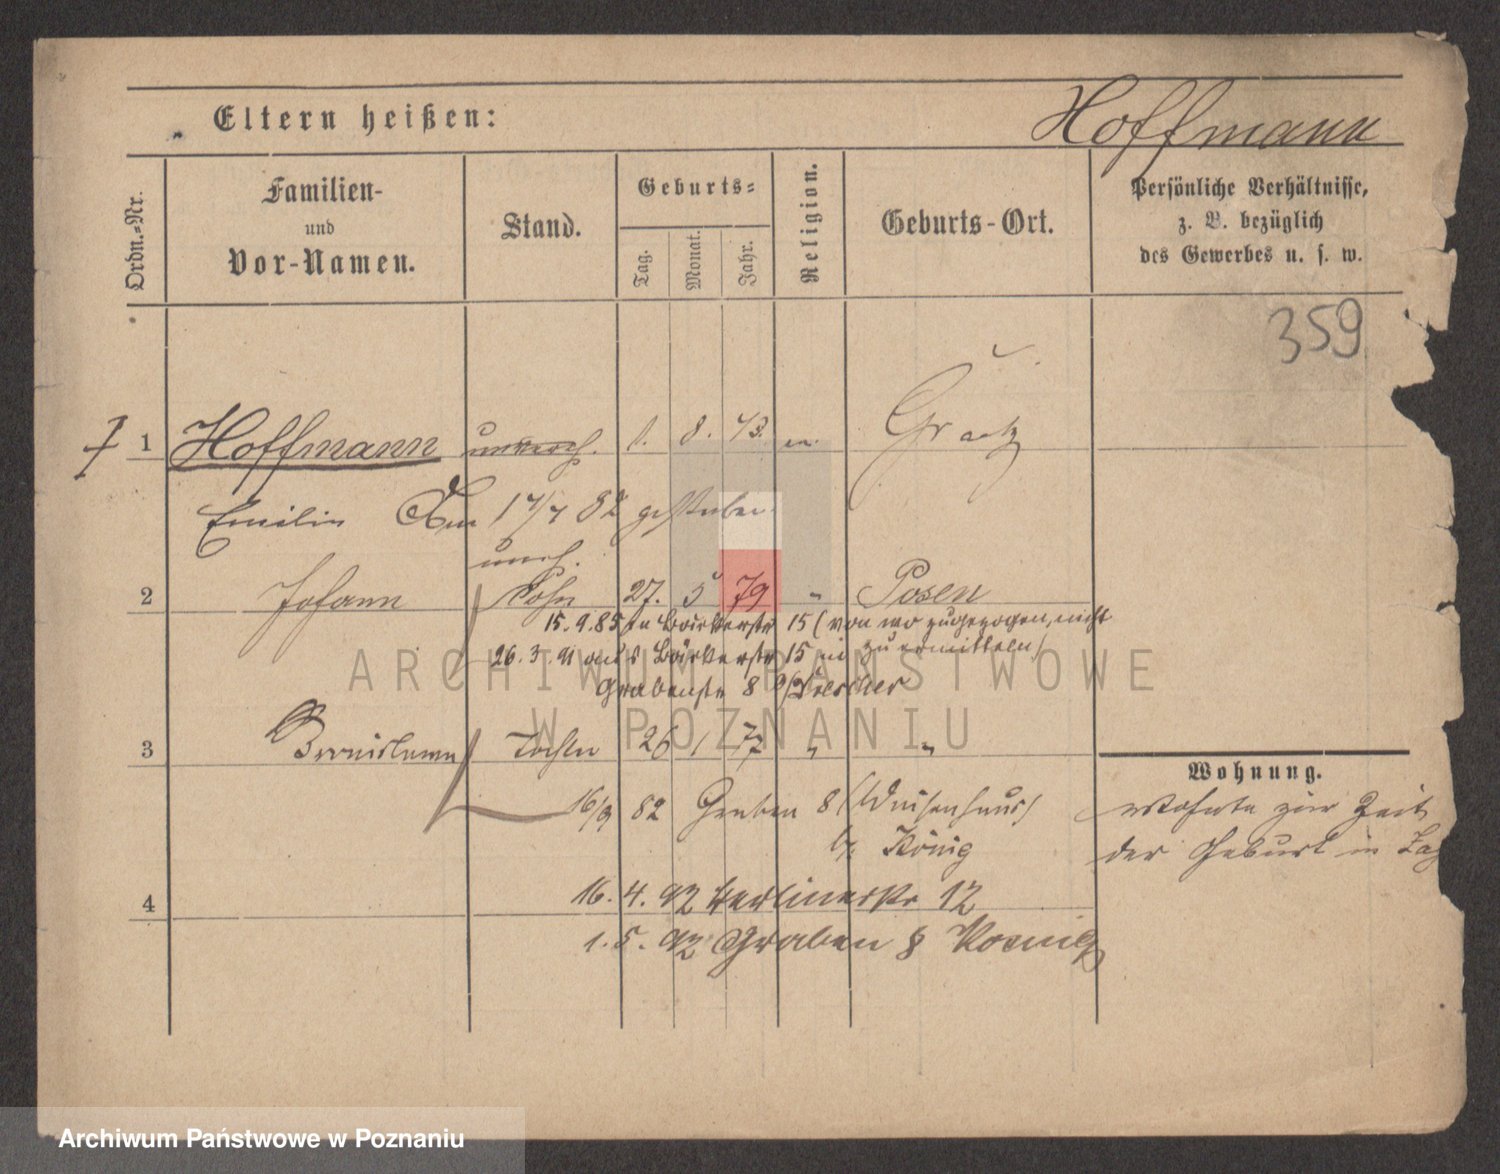 Eltern heißen: Hoffmann
Ordn.-Nr.
Familien-
und
Vor-Namen.
Stand.
Geburts-
Tag. Monat. Jahr.
Religion.
Geburts-Ort.
Persönliche Verhältnisse,
z. B. bezüglich
des Gewerbes u. s. w.
359
† 1 Hoffmann unverh. 1. 8. 43. Graetz
Emilie Am 17/7 82 gestorben
uneh.
2 Johann Sohn 27. 5 79 " Posen
15.9.85 In Bäckerstr 15 (von wo zugezogen, nicht
zu ermitteln)
26.3.91 aus Bäckerstr 15 in
Grabenstr 8 b/Drescher
3 Bronislawa Tochter 26 1 77 " "
Wohnung.
16/9 82 Graben 8 (Waisenhaus)
b. König
wohnte zur Zeit
der Geburt in
4
16. 4. 92 Berlinerstr 12
1. 5. 92 Graben 8 Koenig
ARCHIWUM PAŃSTWOWE
W POZNANIU
Archiwum Państwowe w Poznaniu